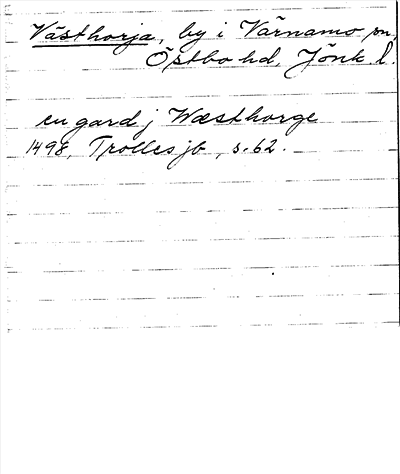 Västhorja, by i Värnamo sn,
Östbo hd, Jönk. l.
en gard j Wæsthorge
1498, Trolles jb, s. 62.